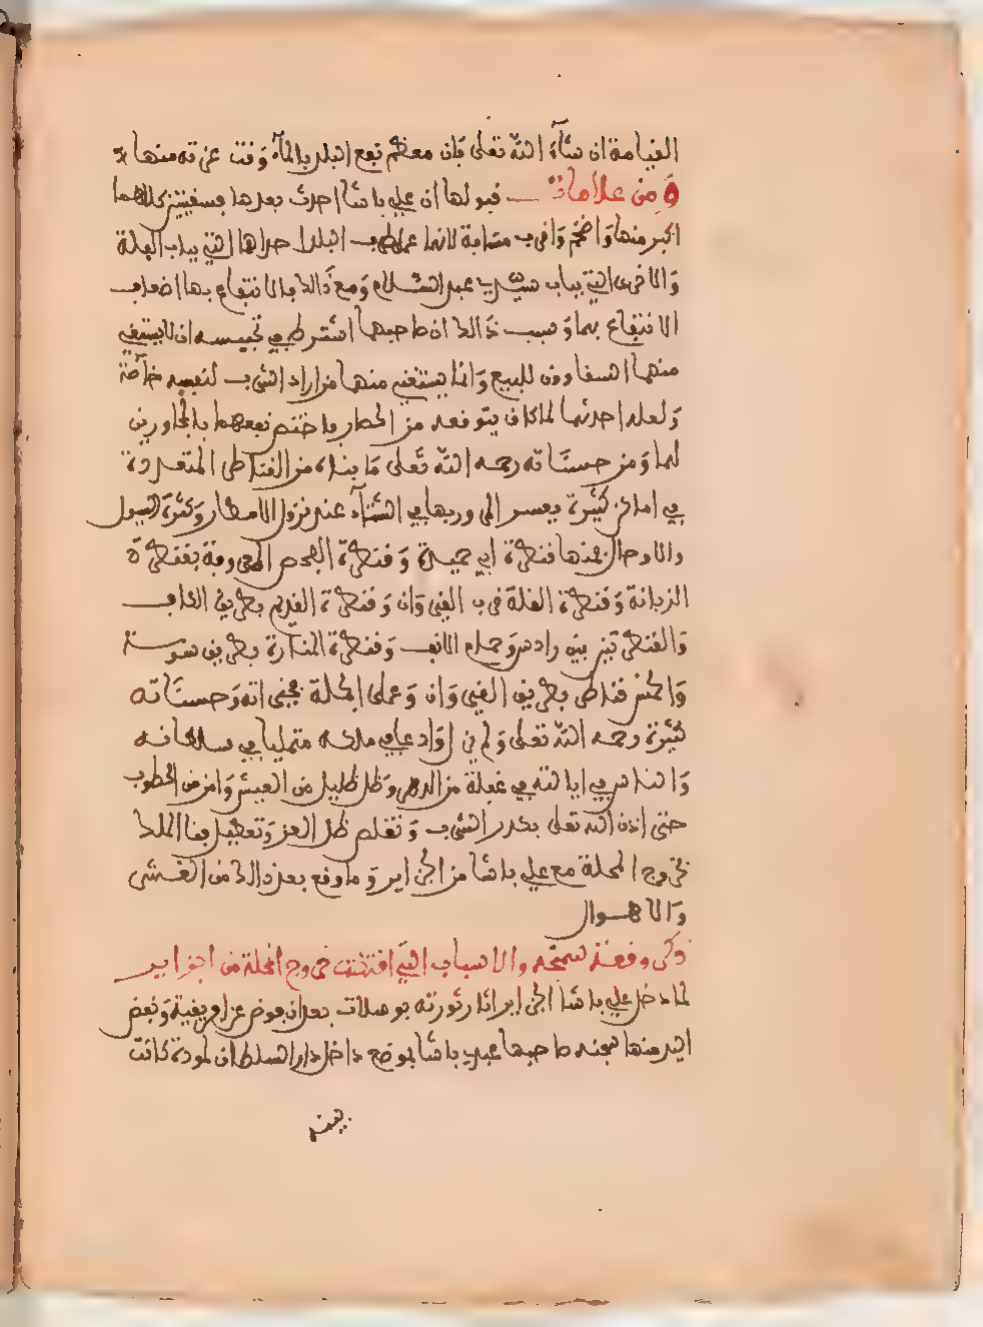 القيامة ان شآء الله تعلى فان معظم نفع البلد بالمآء وقت عزته منها
ومن علامات قبولها ان علي باشا احدث بعدها بسقيتين كلاهما
اكبر منها واضخم واقرب مسافة لانهما على طرف البلد احداها التي بباب العلة
والاخرى التي بباب سيدي عبد السلام ومع ذالك بالانتفاع بها اضعاف
الانتفاع بهما وسبب ذالك ان صاحبها اشترط في تحبيسه ان لا يستقي
منهما السقاوون للبيع وانما يستقي منهما من اراد الشرب لنفسه خاصة
ولعله احدثهما لما كان يتوقعه من الحصار فاختص نفعهما بالمجاورين
لهما ومن حسناته رحمه الله تعلى ما بناه من القناطر المتعددة
في اماكن كثيرة يعسر المرور بها في الشتآء عند نزول الامطار وكثرة السيول
والاوحال فمنها قنطرة ابي حميدة وقنطرة الفحص المعروفة بقنطرة
الزبانة وقنطرة الفلة قرب القيروان وقنطرة الفريم بطريق الكاف
والقنطرتين بين رادس وحمام الانف وقنطرة المنارة بطريق سوسة
واكثر قناطر بطريق القيروان وعلى الجملة فخيراته وحسناته
كثيرة رحمه الله تعلى ولم يزل وادعا في ملكه متمليا في سلطانه
والناس في ايالته في غفلة من الدهر وظل ظليل من العيش وامن من الخطوب
حتى اذن الله تعلى بكدر الشرب وتقلص ظل العز وتعطيل بنا الملك
بخروج المحلة مع علي باشا من الجزاير وما وقع بعد ذالك من الفتن
والاهوال
ذكر وقعة سمنجه والاسباب التي اقتضت خروج المحلة من الجزاير
لما دخل علي باشا الجزاير اثار ثورته بوسلات بعد ان قوض عن افريقية ونفض
اليد منها سجنه صاحبها عبدي باشا بموضع داخل دار السلطان لمودة كانت
بينه